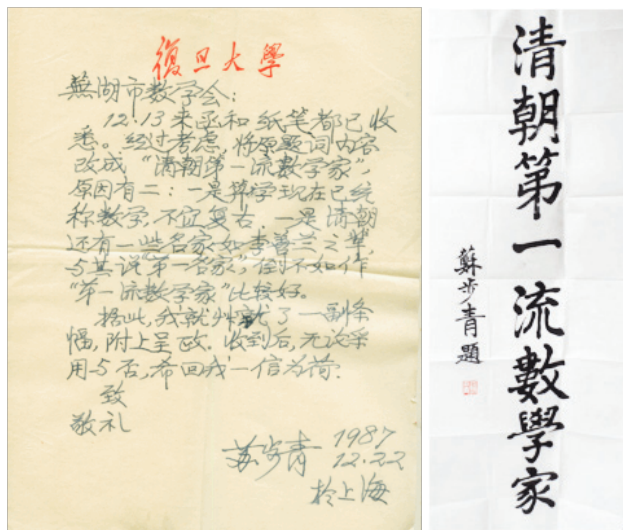 復旦大學
蕪湖市数学会：
12.13来函和纸笔都已收
悉。经过考虑，将原题词内容
改成“清朝第一流数学家”，
原因有二：一是算学现在已统
称数学，不宜复古．一是清朝
还有一些名家如李善兰之辈
与其说“第一名家”，倒不如作
“第一流数学家”比较好。
据此，我就州就了一副条
幅，附上呈政．收到后，无论采
用与否，希回我一信为荷．
致
敬礼
苏步青 1987
12.22
於上海
清朝第一流數學家
蘇步青題